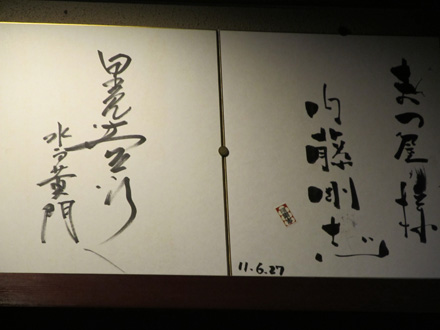 まつ屋様
内藤剛志
11.6.27
里見浩太朗
水戸黄門